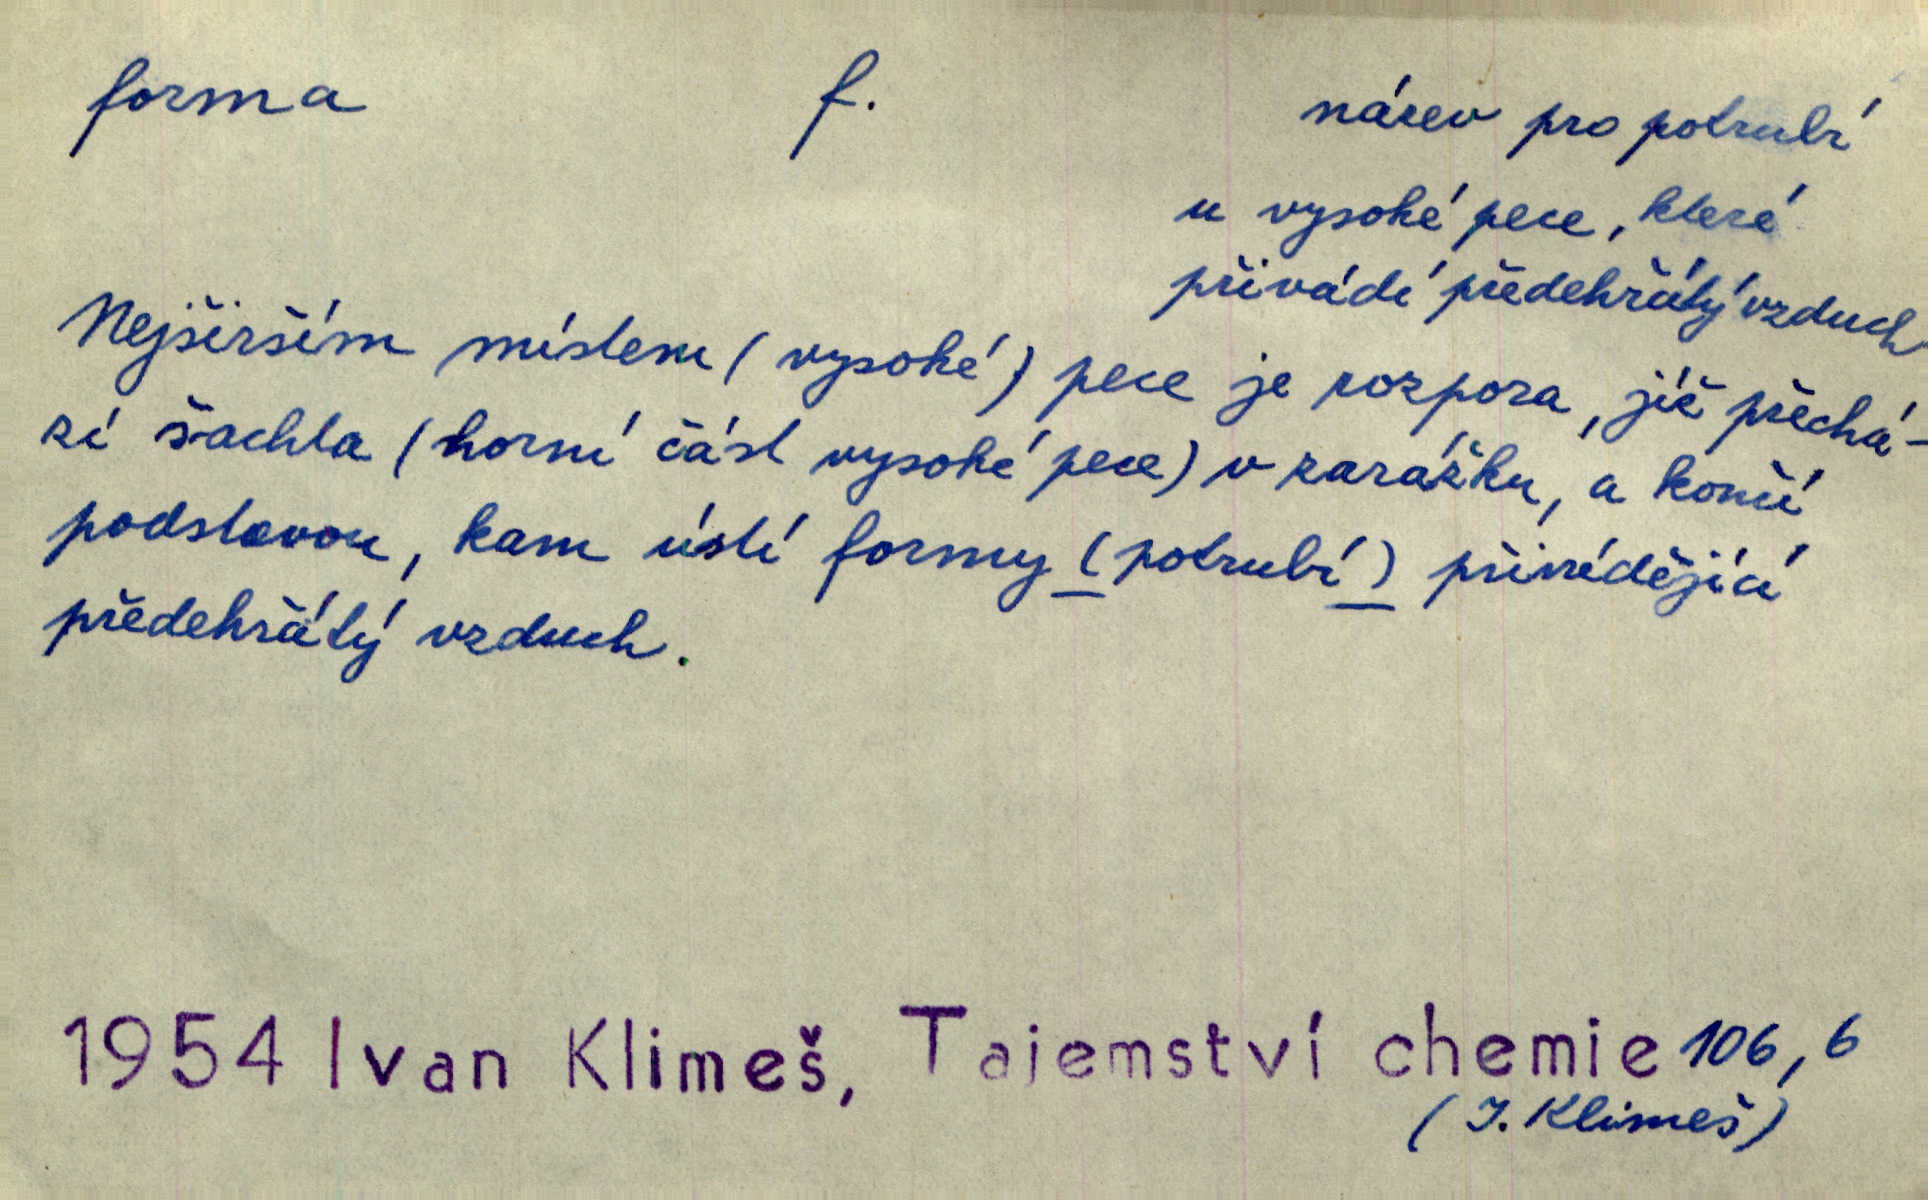 forma f. název pro potrubí
u vysoké pece, které
přivádí předehřátý vzduch
Nejširším místem (vysoké) pece je rozpora, jíž přechá-
zí šachta (horní část vysoké pece) v zarážku, a končí
podstavou, kam ústí formy (potrubí) přivádějící
předehřátý vzduch.
1954 Ivan Klimeš, Tajemství chemie 106, 6
(I. Klimeš)